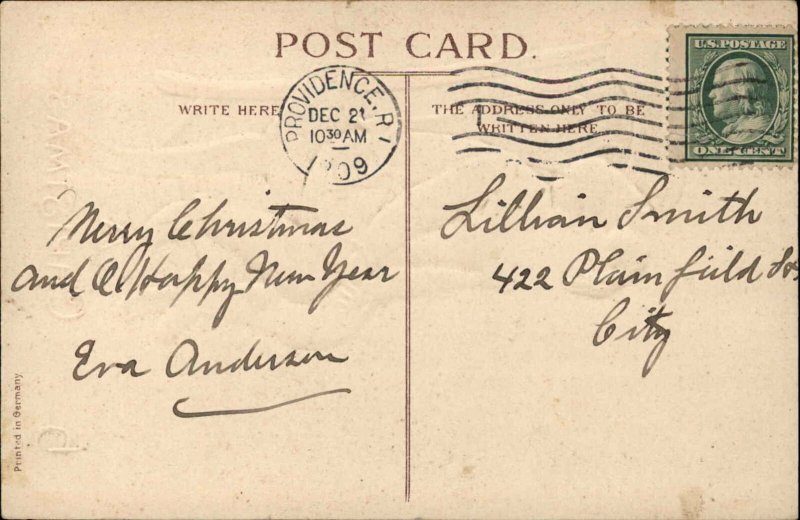 POST CARD.
WRITE HERE
THE ADDRESS ONLY TO BE
WRITTEN HERE.
PROVIDENCE, R I
DEC 21
10 30 AM
1909
U.S. POSTAGE
ONE CENT
Merry Christmas
and A Happy New Year
Eva Anderson
Lillian Smith
422 Plainfield
City
Printed in Germany